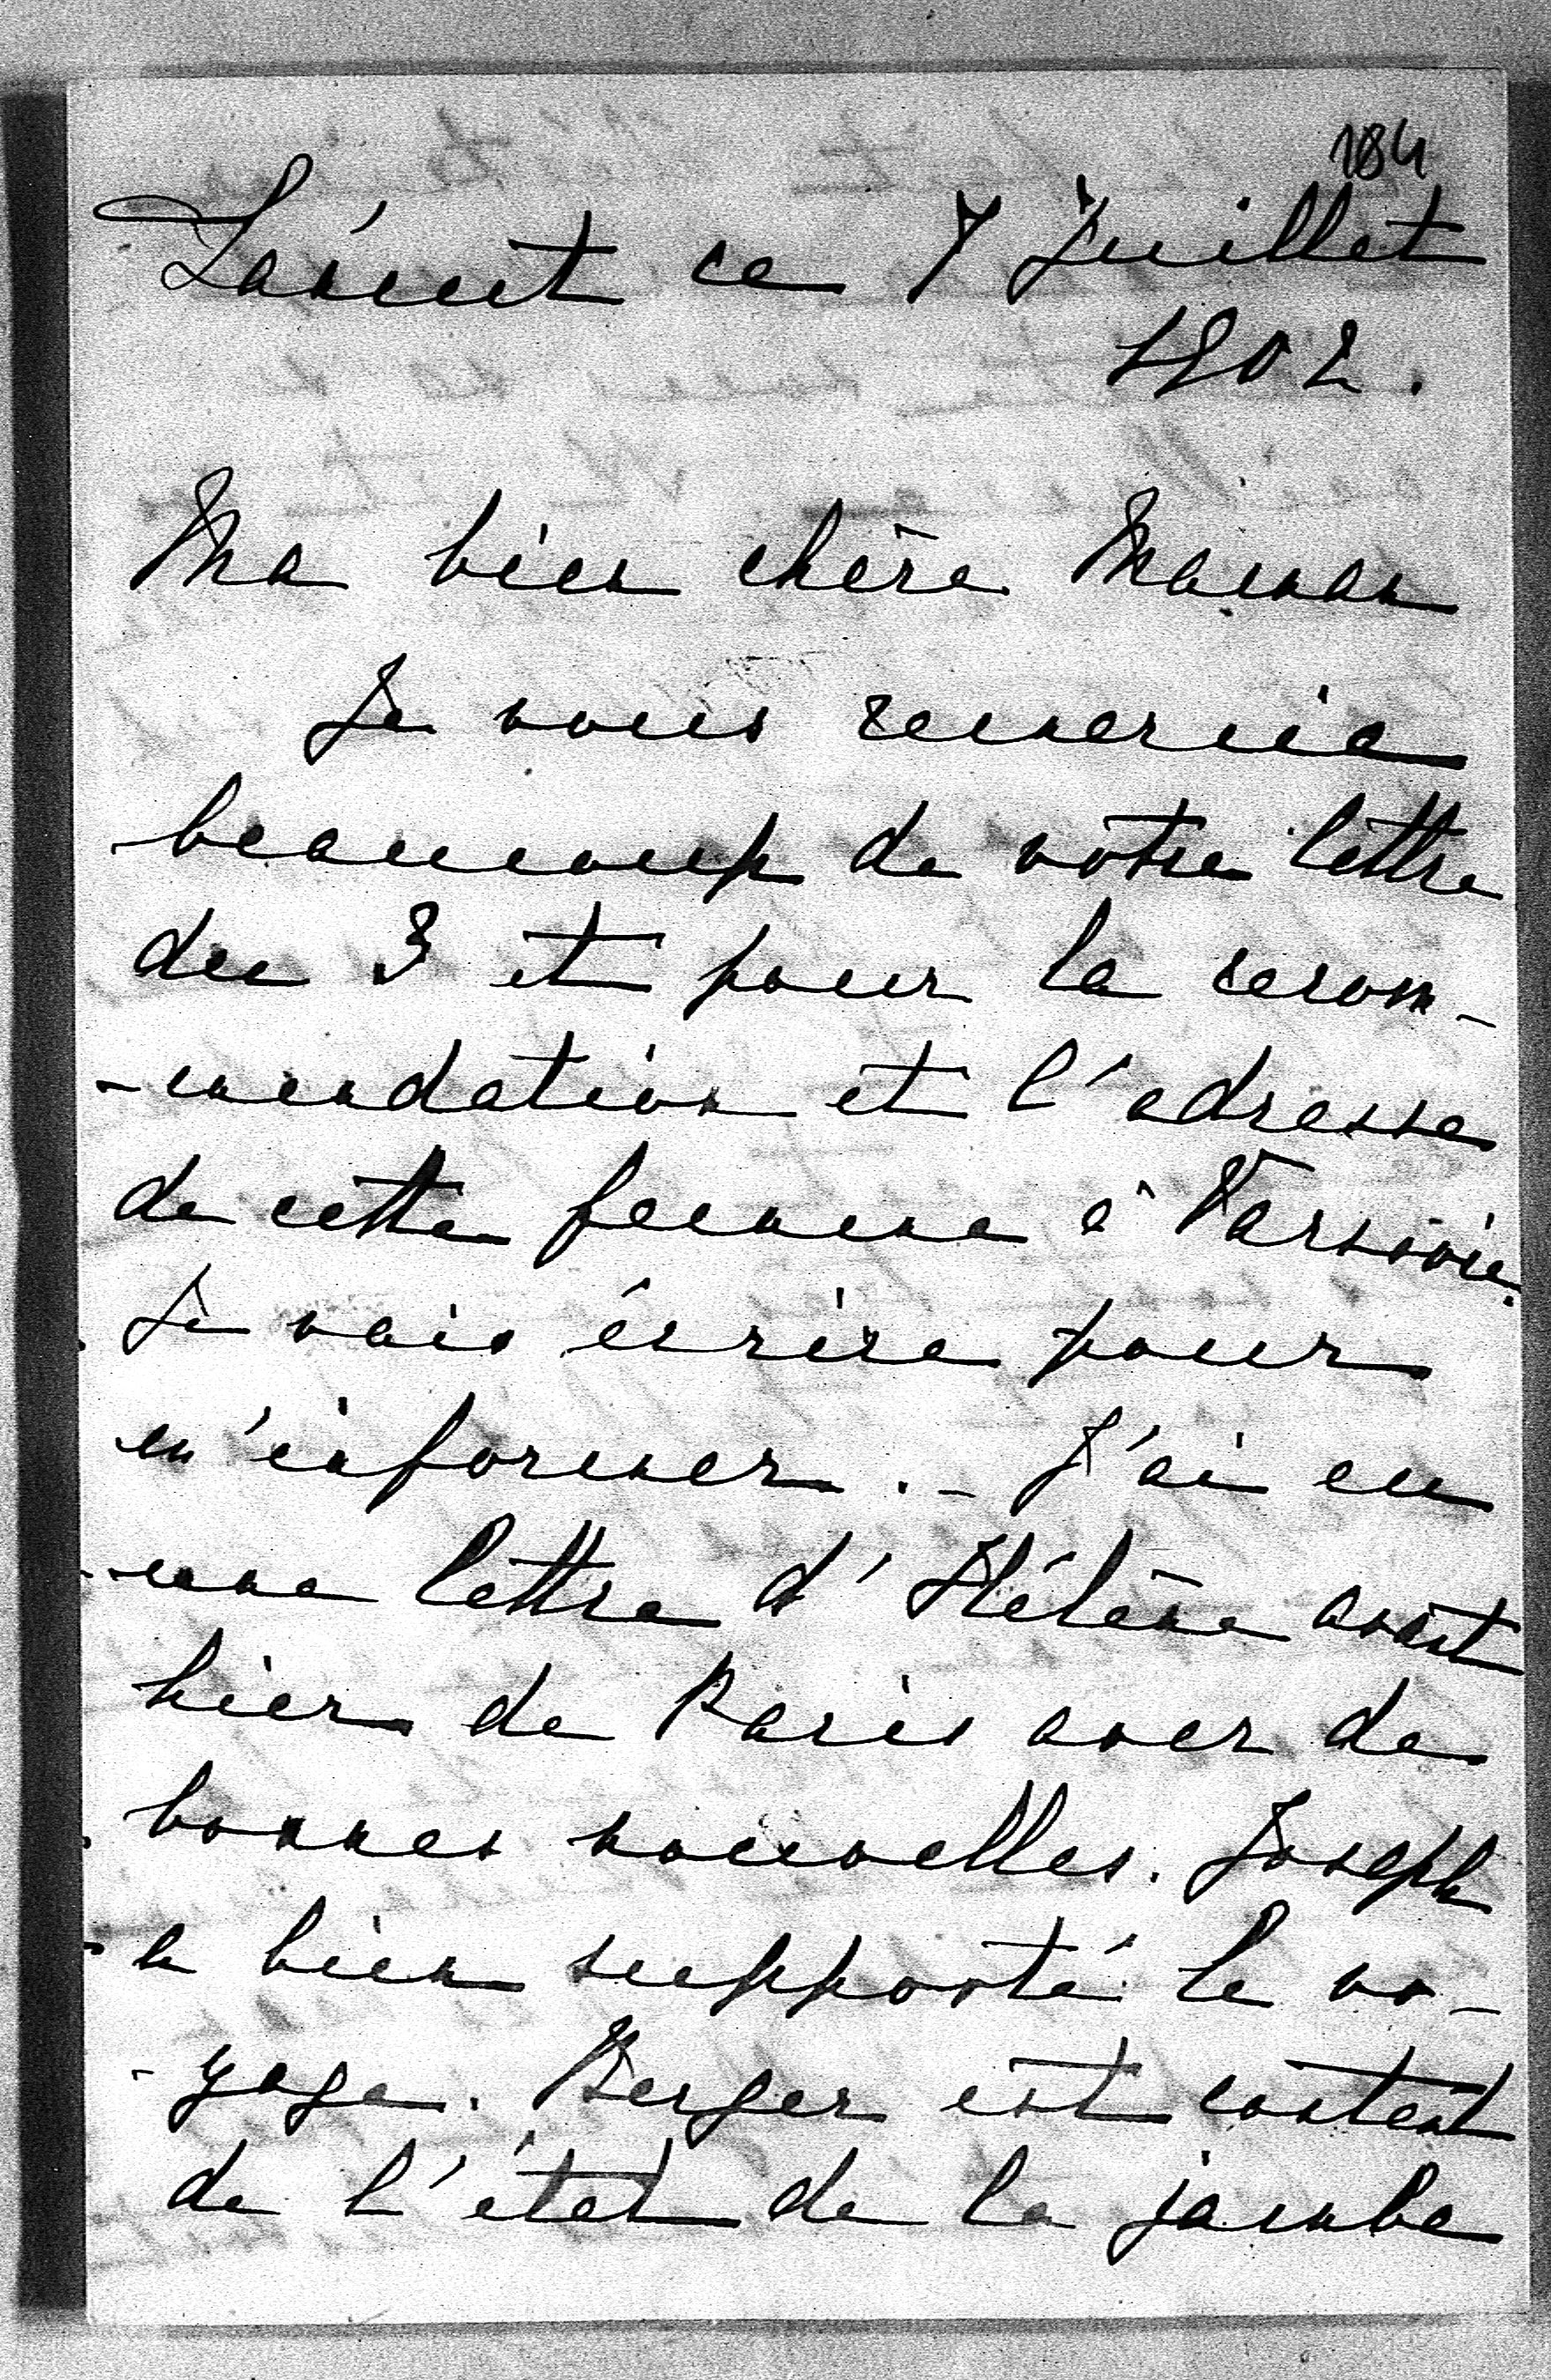 184
Łańcut ce 7 Juillet
1902.
Ma bien chère Maman
Je vous remercie
beaucoup de votre lettre
du 3 et pour la recom-
-mendation et l'adresse
de cette femme à Varsovie.
Je vais écrire pour
m'informer. - J'ai eu
une lettre d'Hélène avant
hier de Paris avec de
bonnes nouvelles. Joseph
a bien supporté le vo-
-yage. Berger est content
de l'état de la jambe